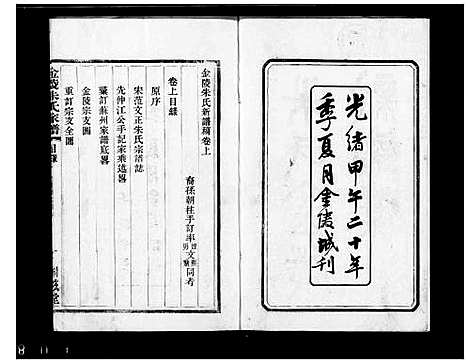 光緒甲午二十年
季夏月金陵城刊
金陵朱氏新譜稿卷上
裔孫朝柱手訂率
文
同考
卷上目錄
原序
宋范文正朱氏宗譜誌
先仲江公手記家乘述畧
彙訂蘇州家譜底畧
金陵宗支圖
重訂宗支全圖
金陵朱氏家譜
目錄
堂